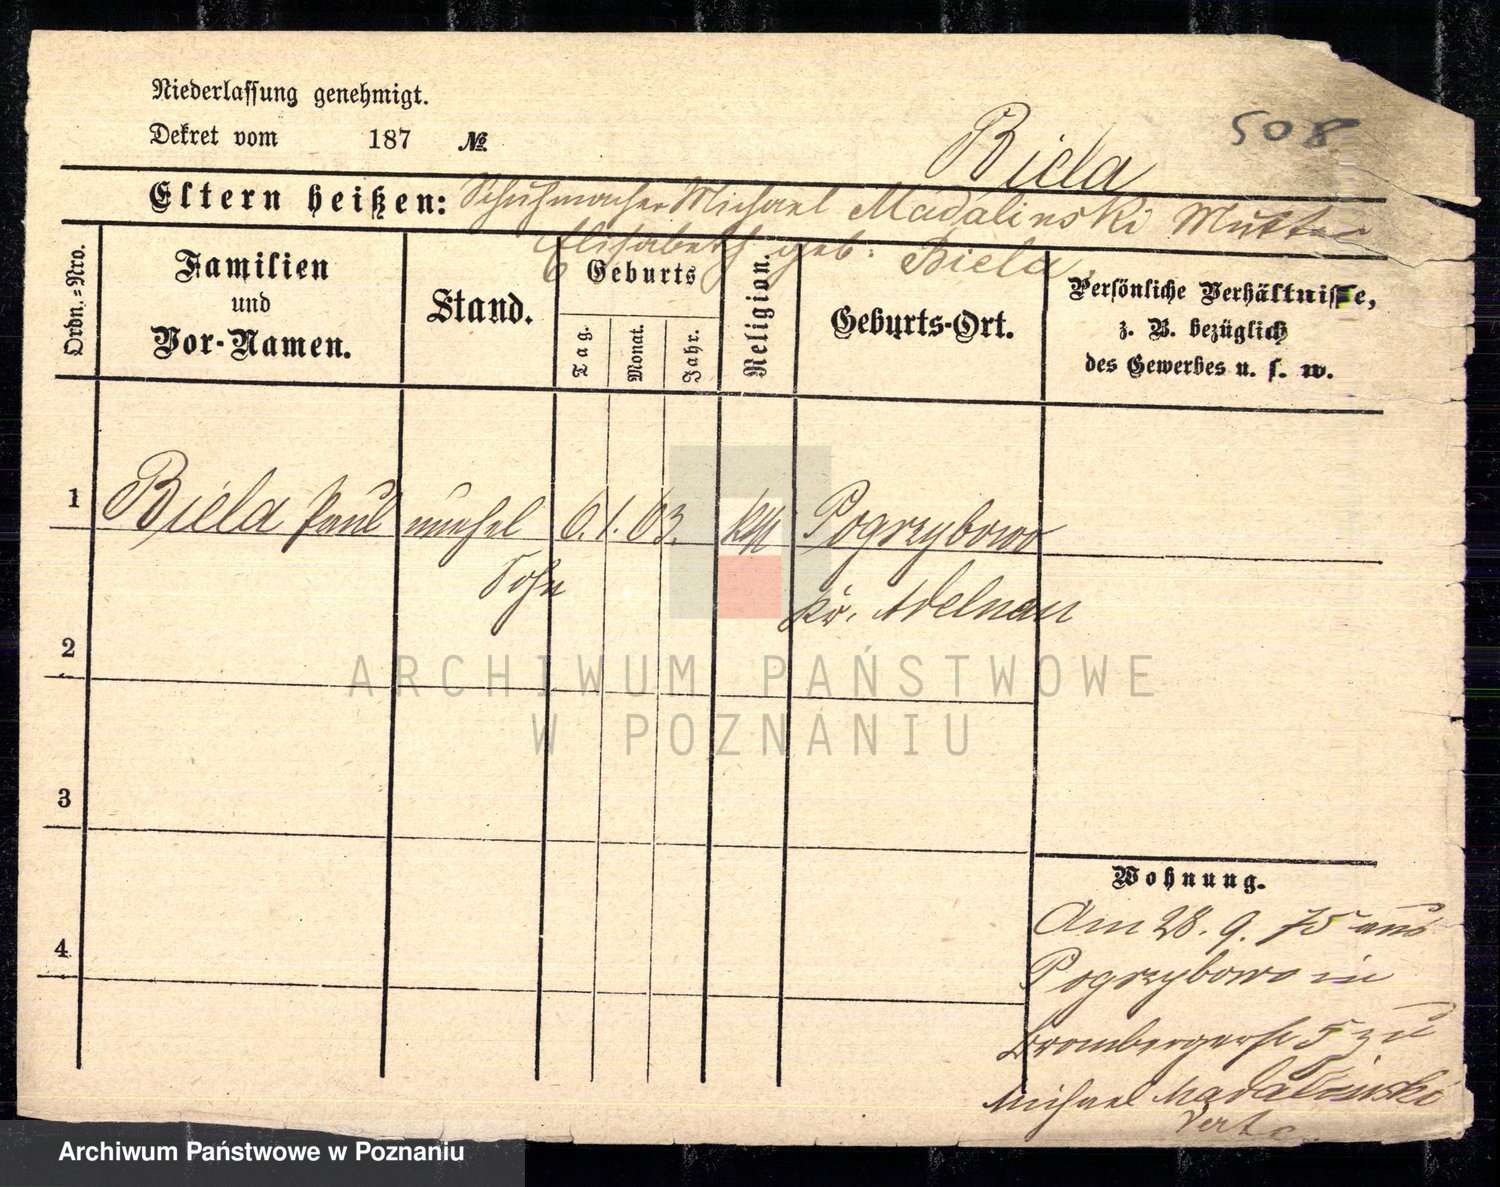 Niederlassung genehmigt.
Dekret vom 187 №
508
Biela
Eltern heißen: Schuhmacher Michael Madalinski Mutter
Elisabeth geb. Biela
Ordn.-Nro.
Familien
und
Vor-Namen.
Stand.
Geburts
Tag.
Monat.
Jahr.
Religion.
Geburts-Ort.
Persönliche Verhältnisse,
z. B. bezüglich
des Gewerbes u. s. w.
1 Biela Paul unehel 6. 1. 63. kath Pogrzybowo
Sohn Kr. Adelnau
2
3
4
ARCHIWUM PAŃSTWOWE
W POZNANIU
Wohnung.
Am 28. 9. 75 aus
Pogrzybowo in
Brombergerstr 5 zu
Michael Madalinski
Archiwum Państwowe w Poznaniu